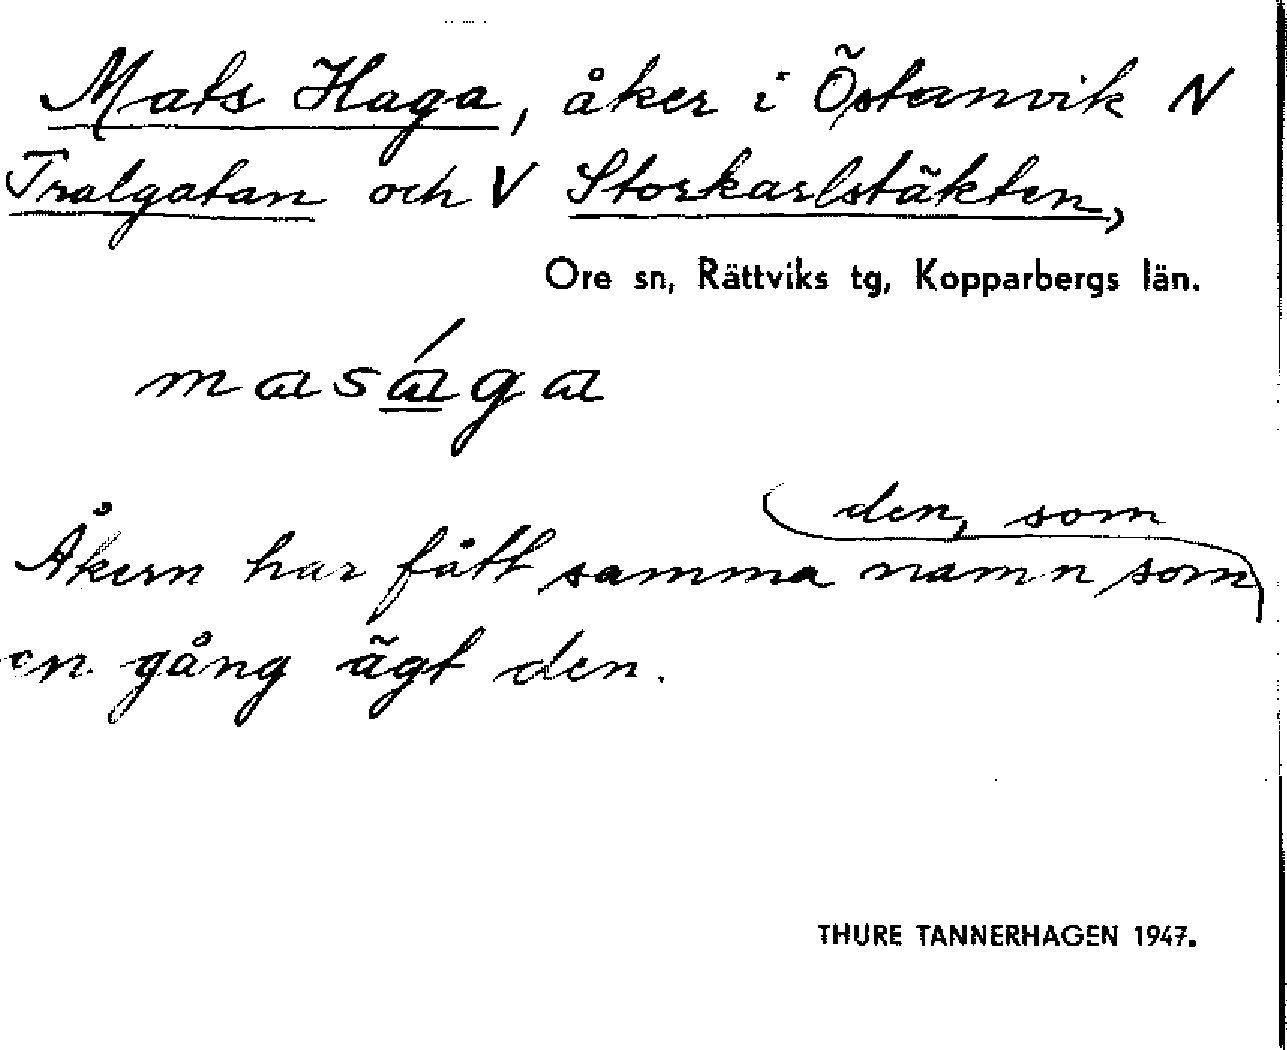 Mats Haga, åker i Östanvik N
Tralgatan och V Storkarlstäkten,
Ore sn, Rättviks tg, Kopparbergs län.
masága
den, som
Åkern har fått samma namn som
en gång ägt den.
THURE TANNERHAGEN 1947.